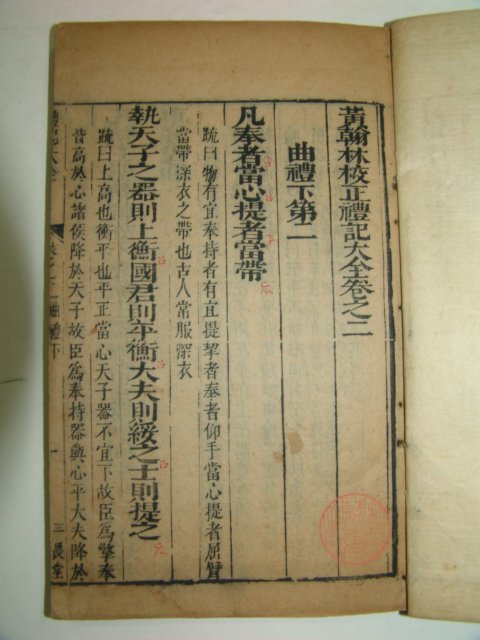 黃翰林校正禮記大全卷之二
曲禮下第二
凡奉者當心提者當帶
疏曰物有宜奉持者有宜提挈者奉者仰手當心提者屈臂
當帶深衣之帶也古人常服深衣
執天子之器則上衡國君則平衡大夫則綏之士則提之
疏曰上高也衡平也平正當心天子器不宜下故臣爲擎奉
皆高於心諸侯降於天子故臣爲奉持器與心平大夫降於
禮記大全 卷之二 曲禮下 一 三畏堂